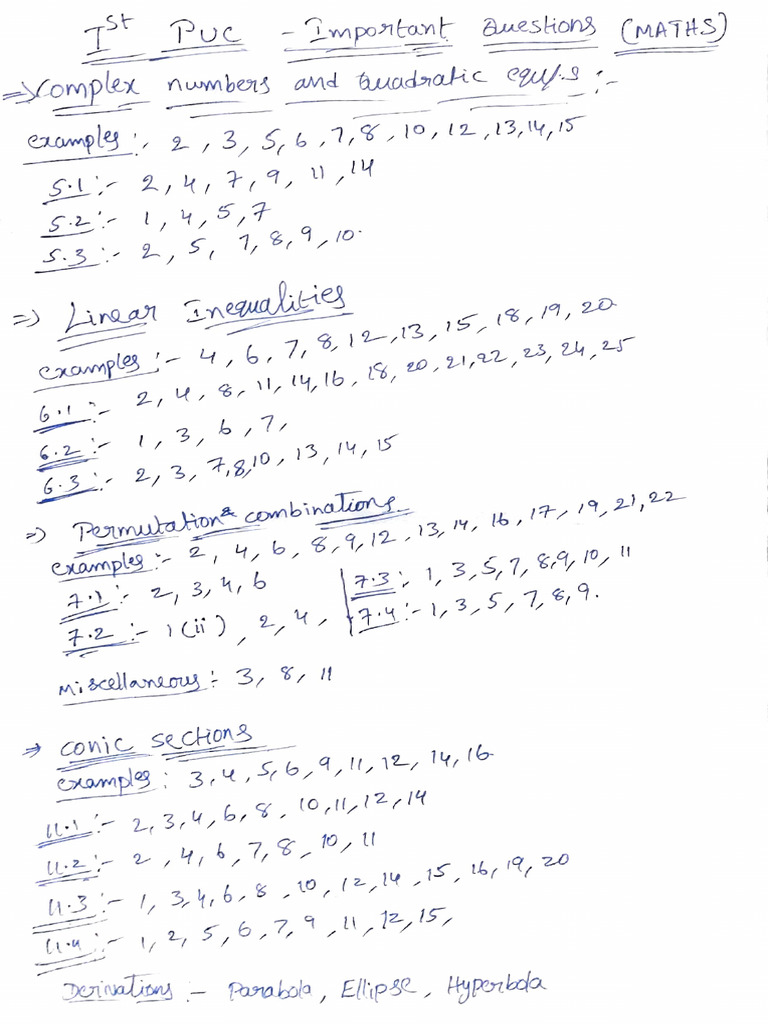 Ist PUC - Important Questions (MATHS)
=> Complex numbers and Quadratic equ/.s :-
examples :- 2, 3, 5, 6, 7, 8, 10, 12, 13, 14, 15
5.1 :- 2, 4, 7, 9, 11, 14
5.2 :- 1, 4, 5, 7
5.3 :- 2, 5, 7, 8, 9, 10.
=> Linear Inequalities
examples :- 4, 6, 7, 8, 12, 13, 15, 18, 19, 20
6.1 :- 2, 4, 8, 11, 14, 16, 18, 20, 21, 22, 23, 24, 25
6.2 :- 1, 3, 6, 7,
6.3 :- 2, 3, 7, 8, 10, 13, 14, 15
=> Permutation & combinations
examples :- 2, 4, 6, 8, 9, 12, 13, 14, 16, 17, 19, 21, 22
7.1 :- 2, 3, 4, 6
7.2 :- 1 (ii), 2, 4,
7.3 :- 1, 3, 5, 7, 8, 9, 10, 11
7.4 :- 1, 3, 5, 7, 8, 9.
Miscellaneous :- 3, 8, 11
=> conic sections
examples : 3, 4, 5, 6, 9, 11, 12, 14, 16
11.1 :- 2, 3, 4, 6, 8, 10, 11, 12, 14
11.2 :- 2, 4, 6, 7, 8, 10, 11
11.3 :- 1, 3, 4, 6, 8, 10, 12, 14, 15, 16, 19, 20
11.4 :- 1, 2, 5, 6, 7, 9, 11, 12, 15,
Derivations :- Parabola, Ellipse, Hyperbola